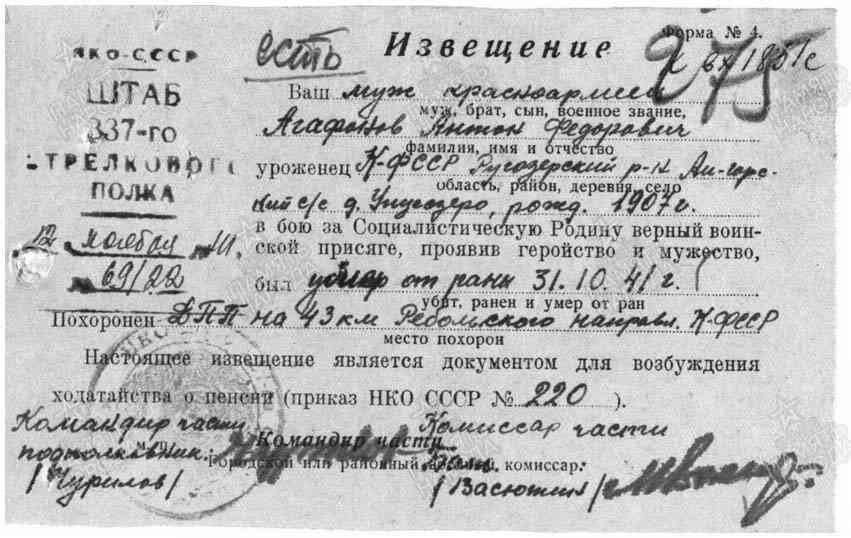 Форма № 4.
НКО-СССР
ШТАБ
337-го
СТРЕЛКОВОГО
ПОЛКА
12 ноября 41
69/22
есть
Извещение
275
к вх 1851с
Ваш муж красноармеец
муж, брат, сын, военное звание,
Агафонов Антон Федорович
фамилия, имя и отчество
уроженец К-ФССР Ругозерский р-н
область, район, деревня, село
кий с/с д. рожд. 1907 г.
в бою за Социалистическую Родину верный воин-
ской присяге, проявив геройство и мужество,
был умер от раны 31.10.41 г.
убит, ранен и умер от ран
Похоронен ДПП на 43 км Ребольского направл. К-ФССР
место похорон
Настоящее извещение является документом для возбуждения
ходатайства о пенсии (приказ НКО СССР № 220 ).
Командир части
подполковник
/Чурилов/
Командир части
Комиссар части
Городской или районный комиссар.
/Васютин/